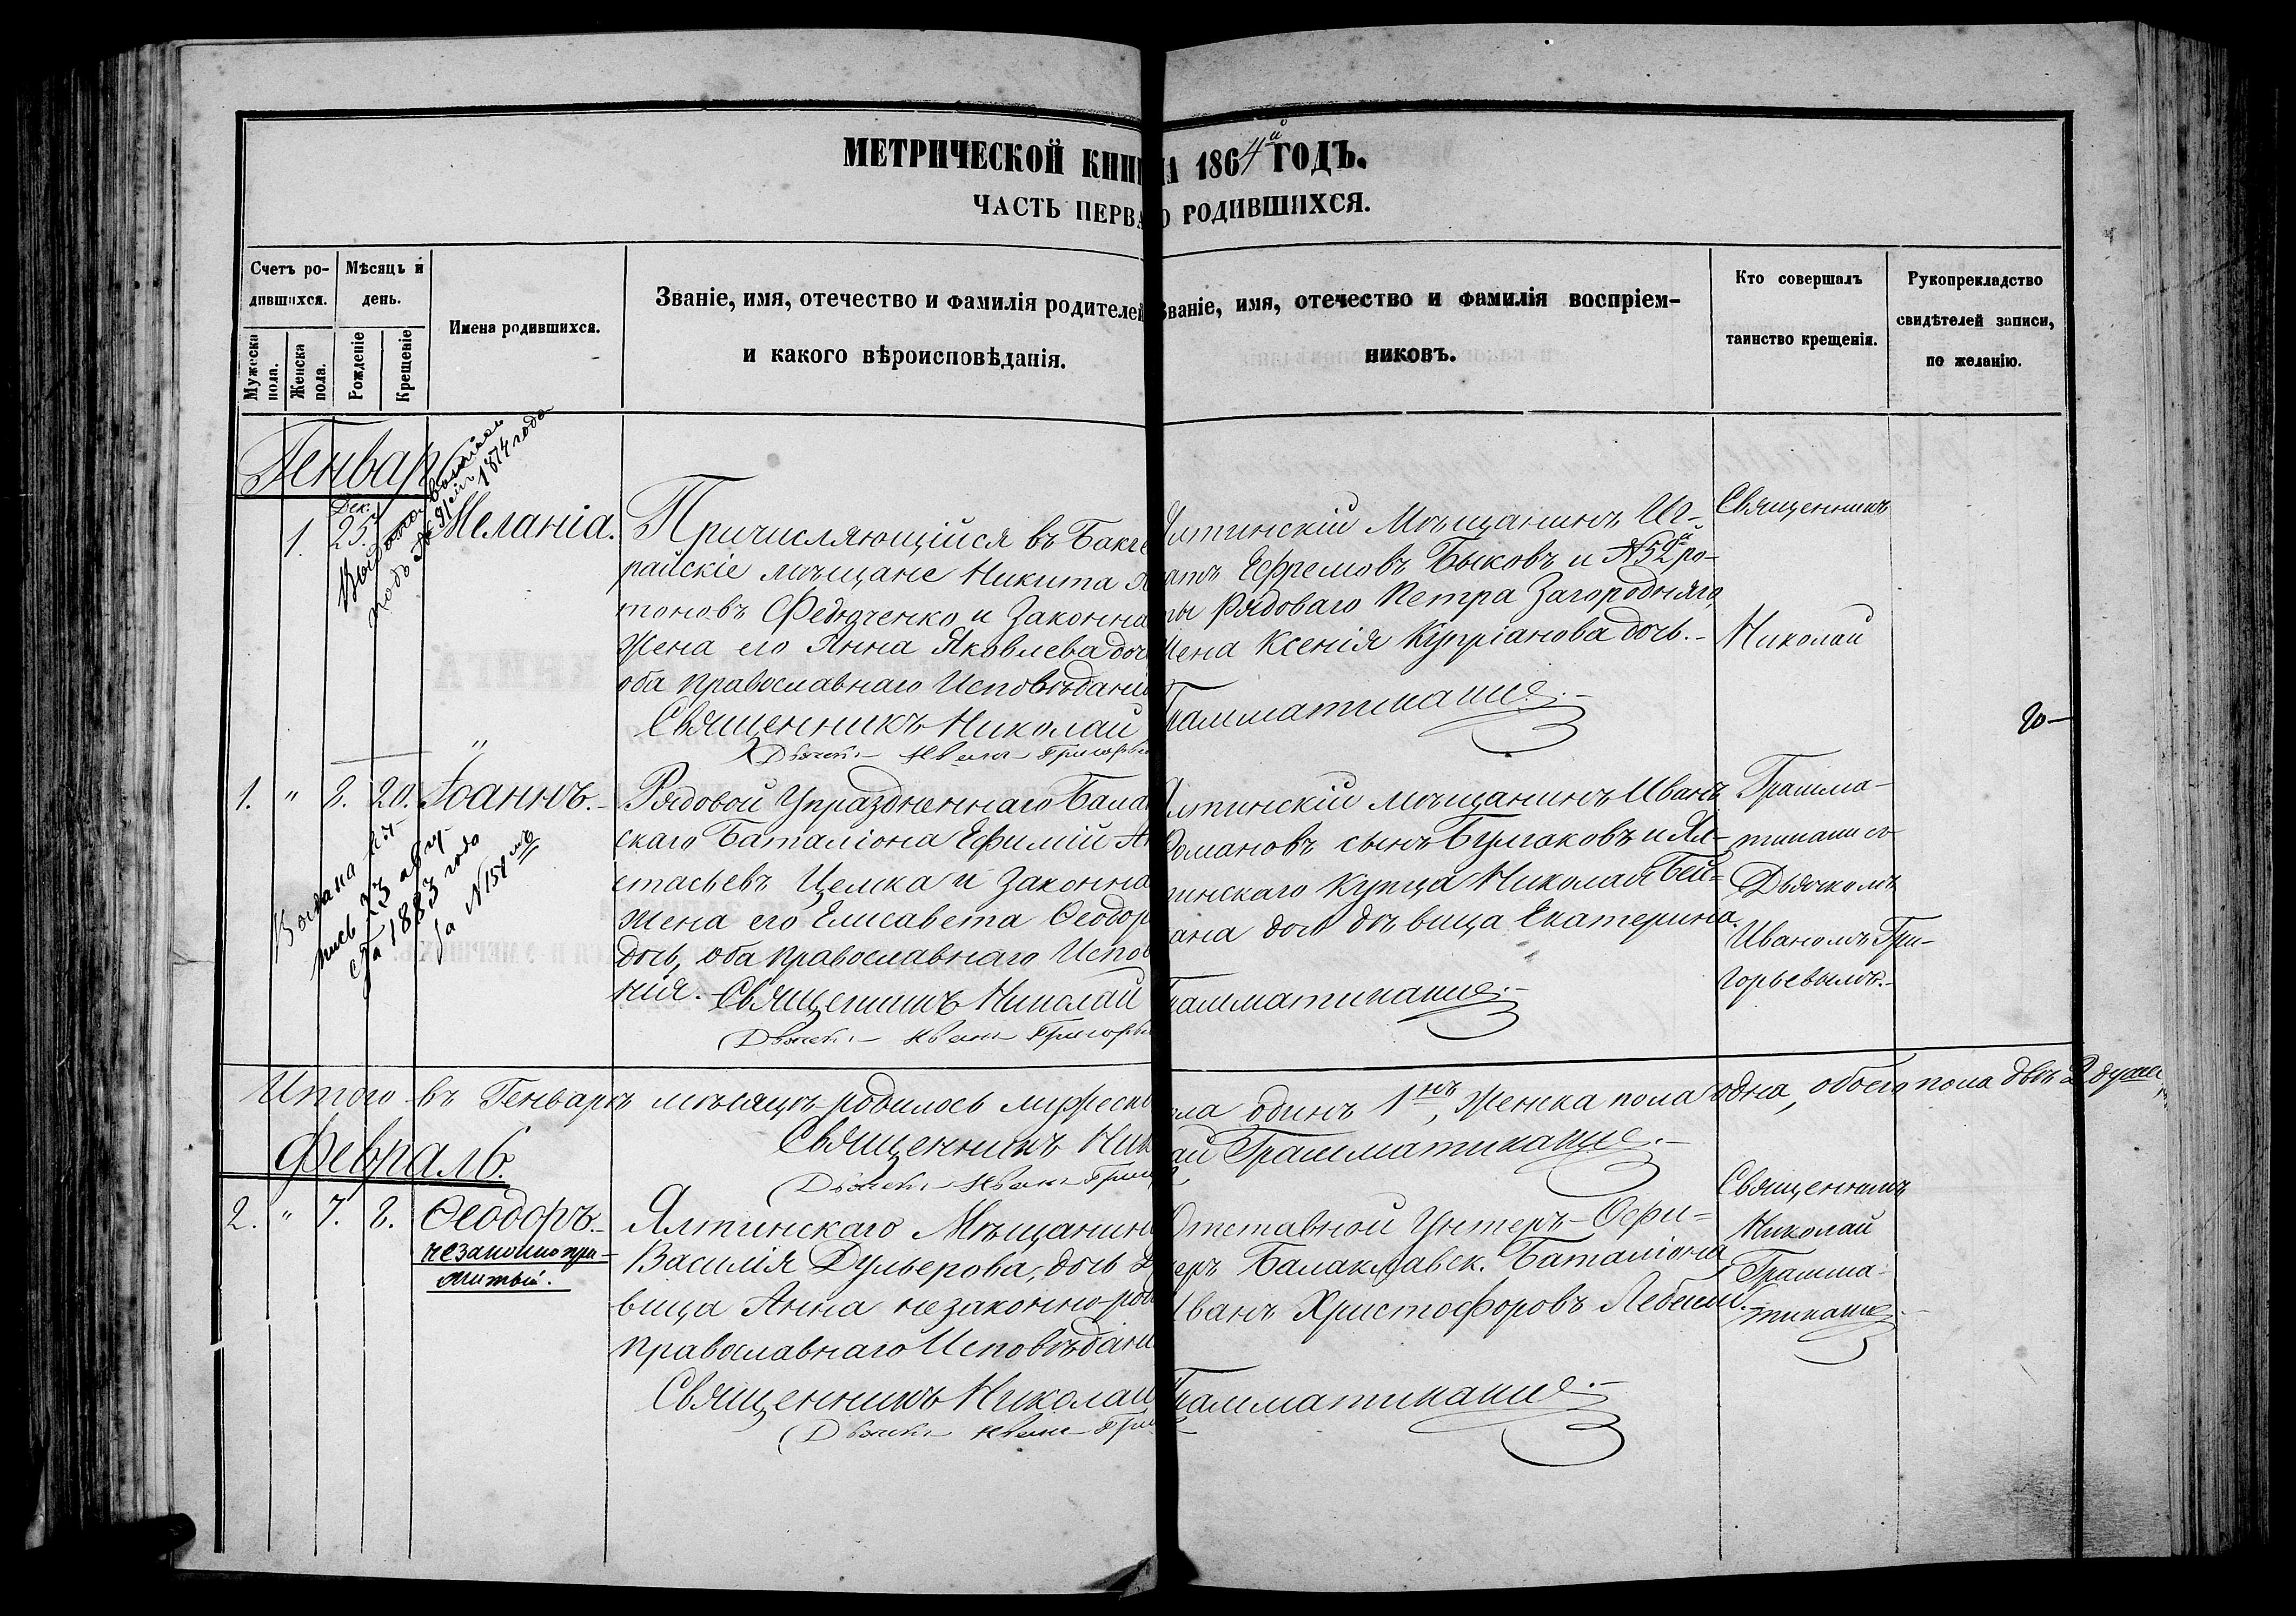 МЕТРИЧЕСКОЙ КНИ НА 1864й ГОДЪ.
ЧАСТЬ ПЕРВА О РОДИВШИХСЯ.
Счетъ ро-
дившихся.
Мужеска пола.
Женска пола.
Мѣсяцъ и
день.
Рожденіе
Крещеніе
Имена родившихся.
Званіе, имя, отечество и фамилія родителей
и какого вѣроисповѣданія.
Званіе, имя, отечество и фамилія воспріем-
никовъ.
Кто совершалъ
таинство крещенія.
Рукоприкладство
свидѣтелей записи,
по желанію.
Генварь
1.
Дек.
25.
1874 года
Меланія.
Причисляющійся въ Бахче
райскіе мѣщане Никита
тоновъ Федюченко и Законна
Жена его Анна Яковлева доч
оба православнаго Исповѣдані
Священникъ Николай
Дьячек Иван Григорье
Ялтинскій Мѣщанинъ Иг-
натъ Ефремовъ Быковъ и №52й ро-
ты Рядоваго Петра Загородняго
Жена Ксенія Купріанова дочь.
Грамматикати
Священникъ
Николай
20-
1. " 8. 20. Іоаннъ.
Рядовой Упраздненнаго Бала
скаго Баталіона Ефимій Ан
стасьевъ Цемка и Законна
Жена его Елисавета Ѳеодор
дочь, оба православнаго Испов
нія.
Священникъ Николай
Дьячек Иван Григорье
Выдана
23 авгу
1883 года
За №151
Ялтинскій мѣщанинъ Иванъ
Романовъ сынъ Булгаковъ и Ял-
тинскаго Купца Николая Бей-
ана дочь дѣвица Екатерина.
Грамматикати
Грамма-
Дьячкомъ
Иваномъ Гри-
горьевымъ.
Итого въ Генварѣ мѣсяцѣ родилось мужеск
ола одинъ 1нъ, женска пола одна, обоего пола двѣ 2 души
Священникъ Ник
ай Грамматикати
Дьячек Иван Григ
Февраль.
2. " 7. 8. Ѳеодоръ.
незаконно при-
житый.
Ялтинскаго Мѣщанин
Василія Дульерова, дочь д
вица Анна незаконно-ро
православнаго Исповѣдані
Священникъ Николай
Дьячек Иван Гри
Отставной Унтеръ-Офи-
церъ Балаклавск. Баталіона
Иванъ Христофоровъ
Грамматикати
Священникъ
Николай
Грамма-
тикати